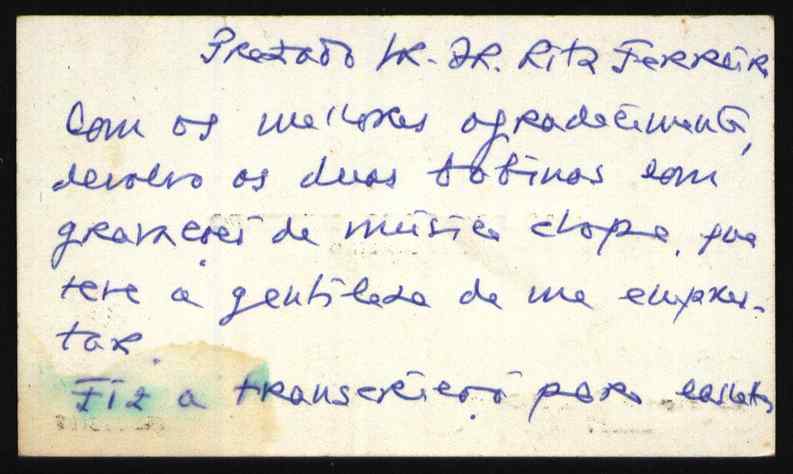 Prezado Sr. Dr. Rita Ferreira
Com os melhores agradecimentos,
devolvo as duas bobinas com
gravações de música chope, que
teve a gentileza de me empres-
tar.
Fiz a transcrição para cassetes